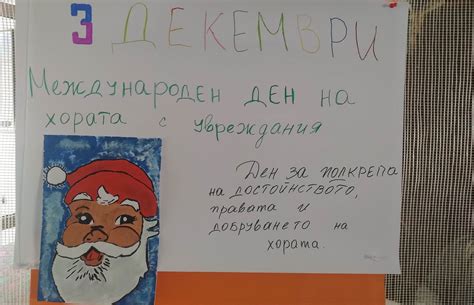 3 ДЕКЕМВРИ
Международен ден на
хората с увреждания
Ден за подкрепа
на достойнството,
правата и
добруването на
хората.